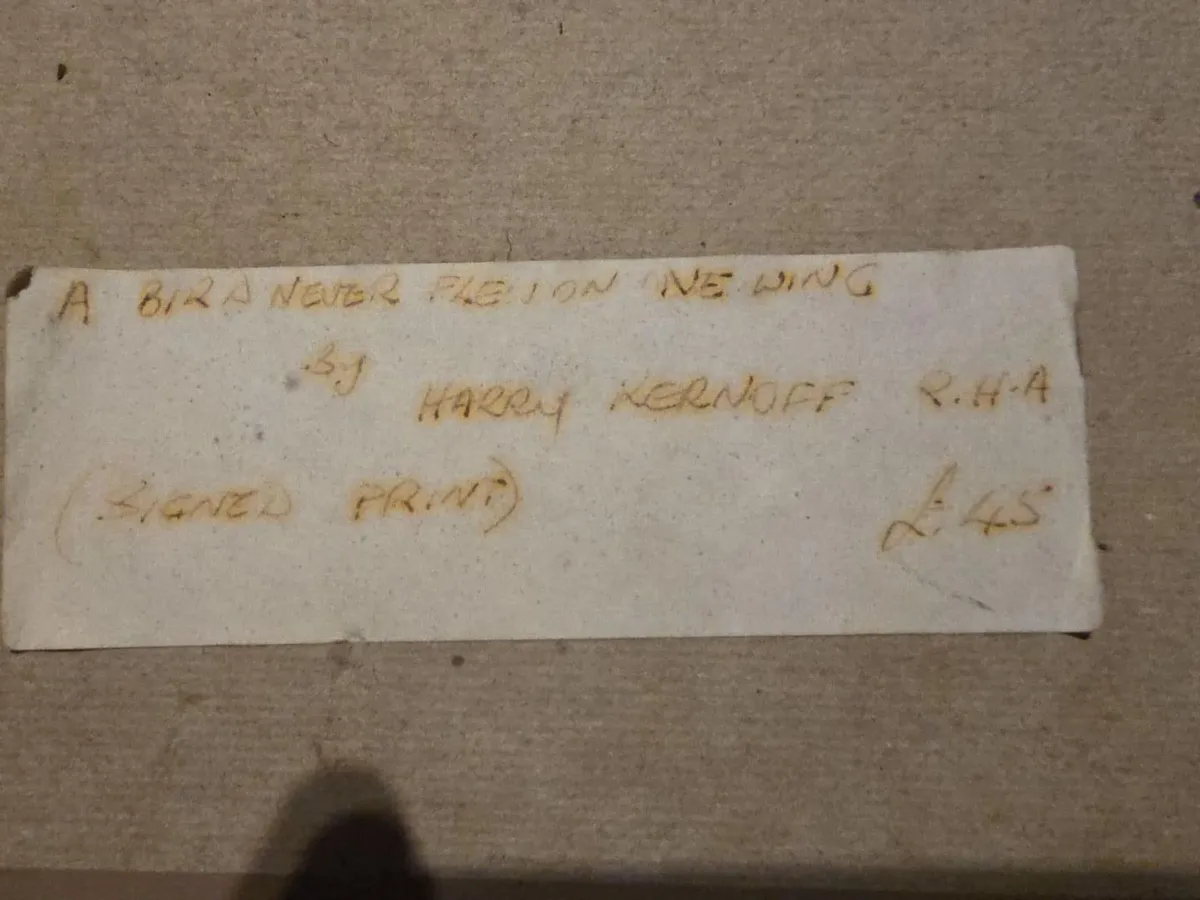 A BIRD NEVER FLEW ON ONE WING
By
HARRY KERNOFF R.H.A
(SIGNED PRINT)
£45